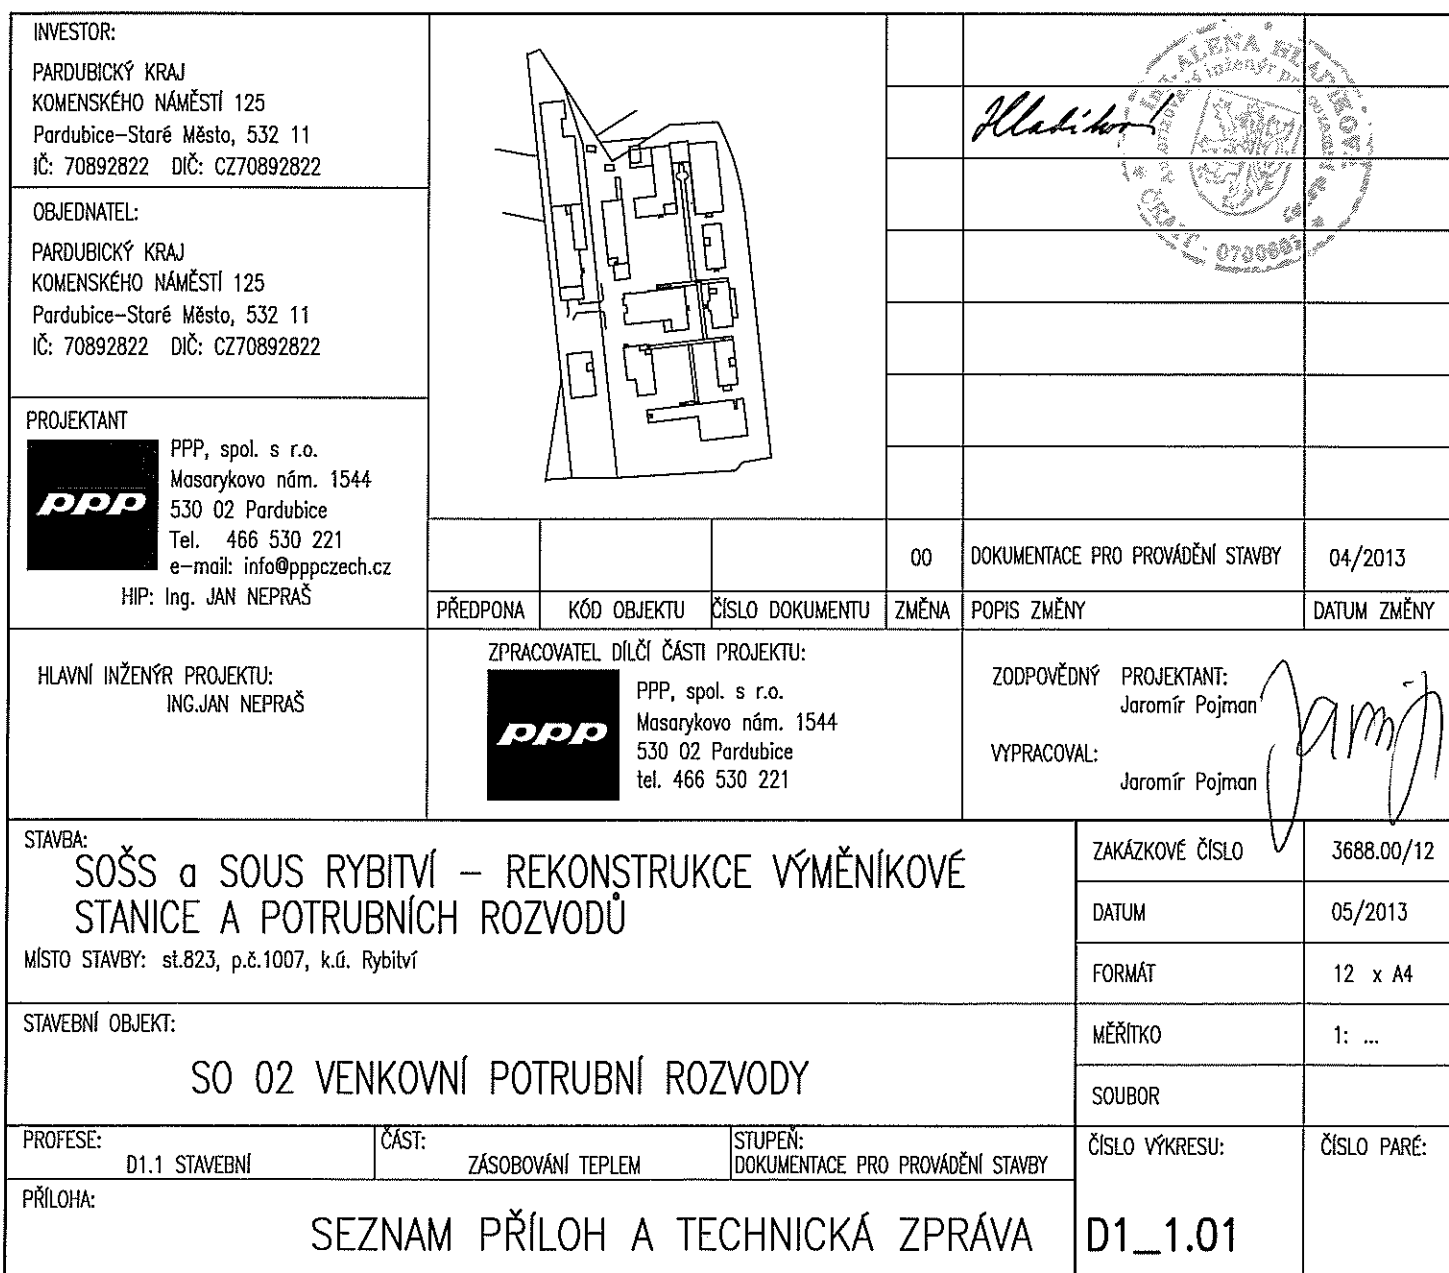 INVESTOR:
PARDUBICKÝ KRAJ
KOMENSKÉHO NÁMĚSTÍ 125
Pardubice-Staré Město, 532 11
IČ: 70892822 DIČ: CZ70892822
OBJEDNATEL:
PARDUBICKÝ KRAJ
KOMENSKÉHO NÁMĚSTÍ 125
Pardubice-Staré Město, 532 11
IČ: 70892822 DIČ: CZ70892822
PROJEKTANT
ppp
PPP, spol. s r.o.
Masarykovo nám. 1544
530 02 Pardubice
Tel. 466 530 221
e-mail: info@pppczech.cz
HIP: Ing. JAN NEPRAŠ
Hladíková
ING. ALENA HLADÍKOVÁ
ČKAIT
00 DOKUMENTACE PRO PROVÁDĚNÍ STAVBY 04/2013
PŘEDPONA KÓD OBJEKTU ČÍSLO DOKUMENTU ZMĚNA POPIS ZMĚNY DATUM ZMĚNY
HLAVNÍ INŽENÝR PROJEKTU:
ING.JAN NEPRAŠ
ZPRACOVATEL DÍLČÍ ČÁSTI PROJEKTU:
ppp
PPP, spol. s r.o.
Masarykovo nám. 1544
530 02 Pardubice
tel. 466 530 221
ZODPOVĚDNÝ PROJEKTANT:
Jaromír Pojman
VYPRACOVAL:
Jaromír Pojman
STAVBA:
SOŠS a SOUS RYBITVÍ – REKONSTRUKCE VÝMĚNÍKOVÉ
STANICE A POTRUBNÍCH ROZVODŮ
MÍSTO STAVBY: st.823, p.č.1007, k.ú. Rybitví
ZAKÁZKOVÉ ČÍSLO 3688.00/12
DATUM 05/2013
FORMÁT 12 x A4
STAVEBNÍ OBJEKT:
SO 02 VENKOVNÍ POTRUBNÍ ROZVODY
MĚŘÍTKO 1: ...
SOUBOR
PROFESE:
D1.1 STAVEBNÍ
ČÁST:
ZÁSOBOVÁNÍ TEPLEM
STUPEŇ:
DOKUMENTACE PRO PROVÁDĚNÍ STAVBY
ČÍSLO VÝKRESU:
ČÍSLO PARÉ:
PŘÍLOHA:
SEZNAM PŘÍLOH A TECHNICKÁ ZPRÁVA
D1_1.01